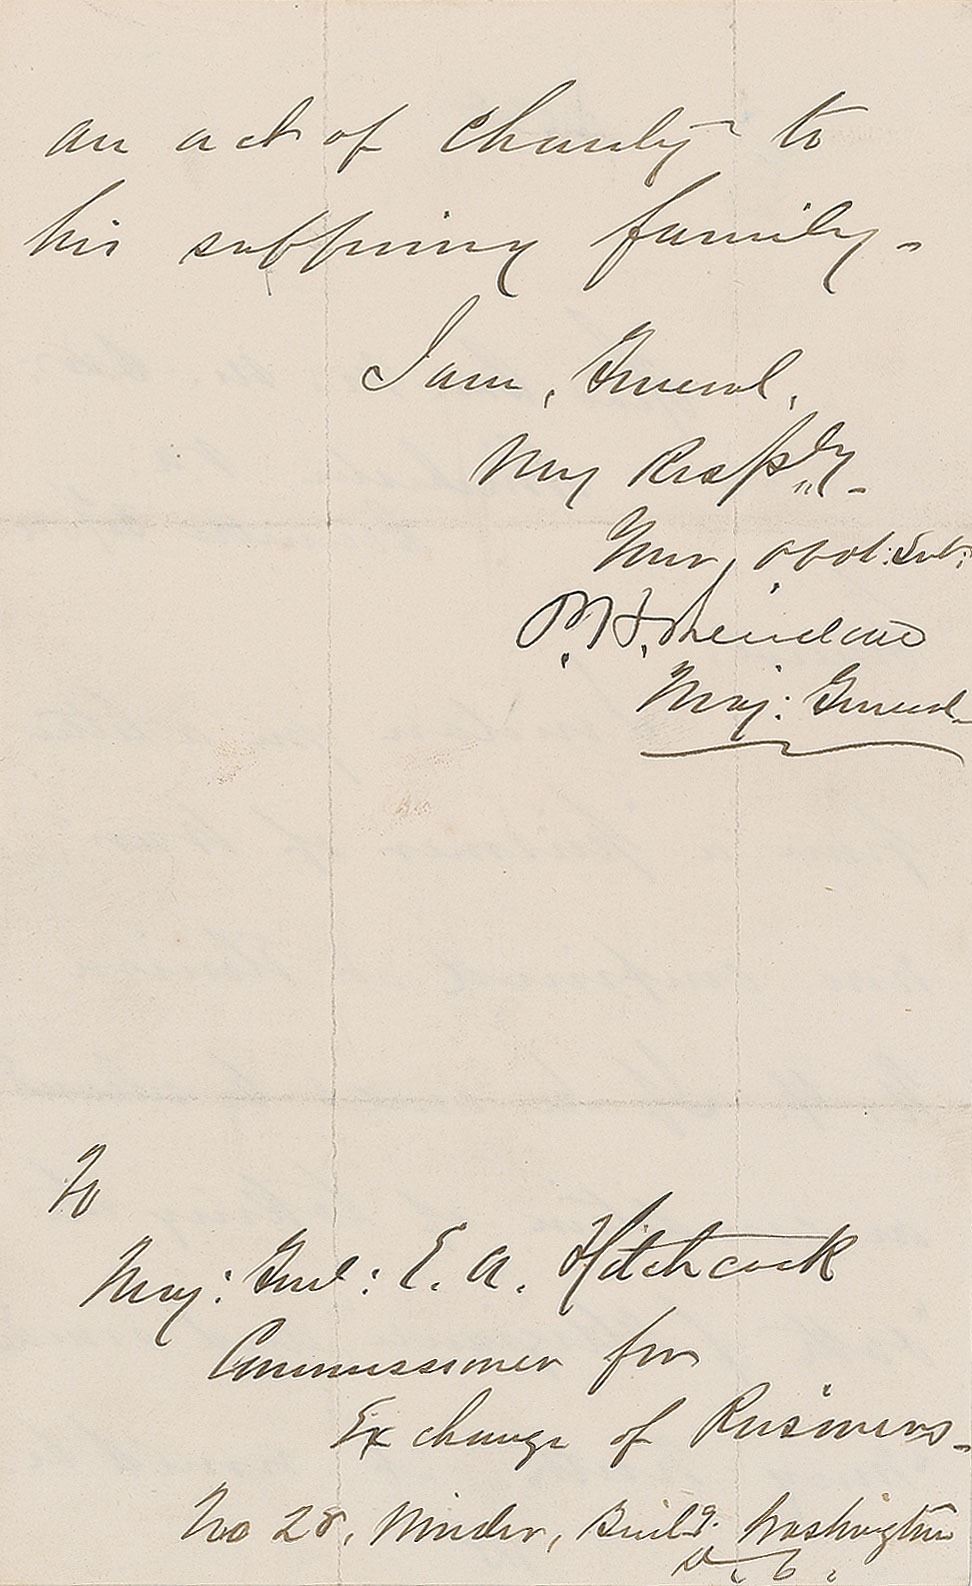 an act of Charity to
his suffering family -
I am, General,
Very Respy. -
Your, obdt: Svt:
Maj: General
To
Maj: Genl: E. A. Hitchcock
Commissioner for
Exchange of Prisoners -
No 28, Winder, Buildg. Washington
D. C.